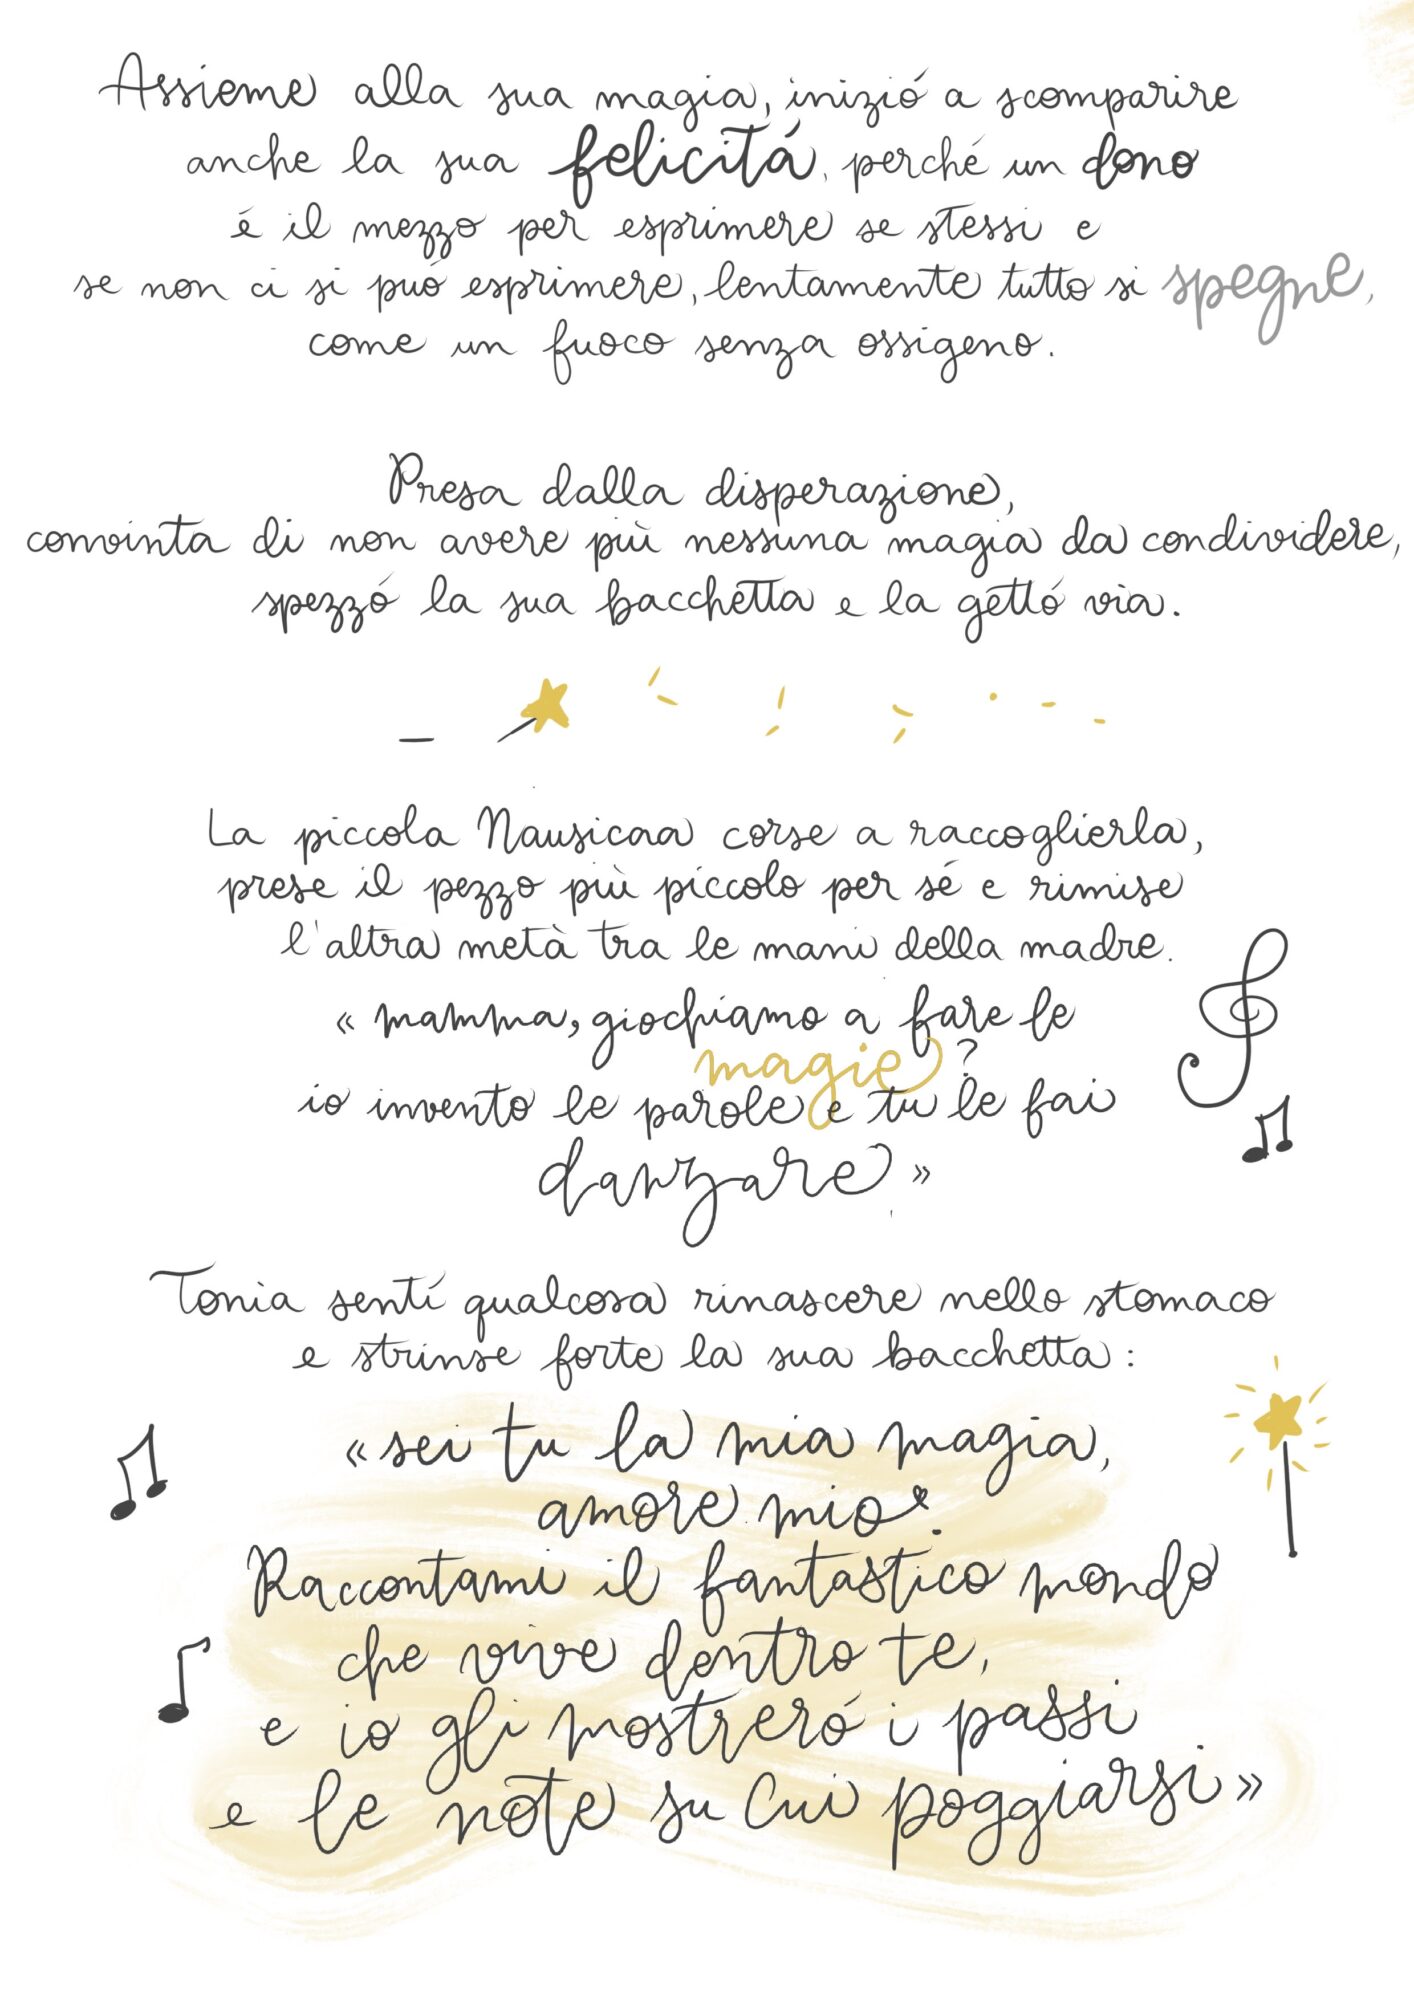 Assieme alla sua magia, inizió a scomparire
anche la sua felicitá, perché un dono
é il mezzo per esprimere se stessi e
se non ci si puó esprimere, lentamente tutto si spegne,
come un fuoco senza ossigeno.
Presa dalla disperazione,
convinta di non avere più nessuna magia da condividere,
spezzó la sua bacchetta e la gettó via.
La piccola Nausicaa corse a raccoglierla,
prese il pezzo più piccolo per sé e rimise
l'altra metà tra le mani della madre.
« mamma, giochiamo a fare le
magie?
io invento le parole e tu le fai
danzare »
Tonia sentí qualcosa rinascere nello stomaco
e strinse forte la sua bacchetta:
«sei tu la mia magia,
amore mio.
Raccontami il fantastico mondo
che vive dentro te,
e io gli mostreró i passi
e le note su cui poggiarsi»